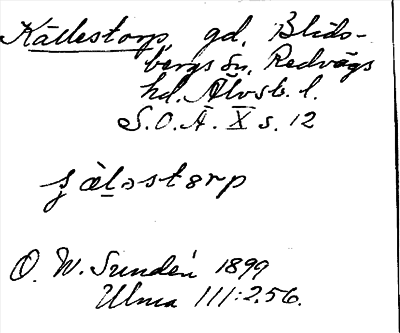 Källestorp gd. Blids-
bergs sn. Redvägs
hd. Älvsb. l.
S.O.Ä. X s. 12
ʂæ̀ḷəstɵrp
O. W. Sundén 1899
Ulma 111:2.56.